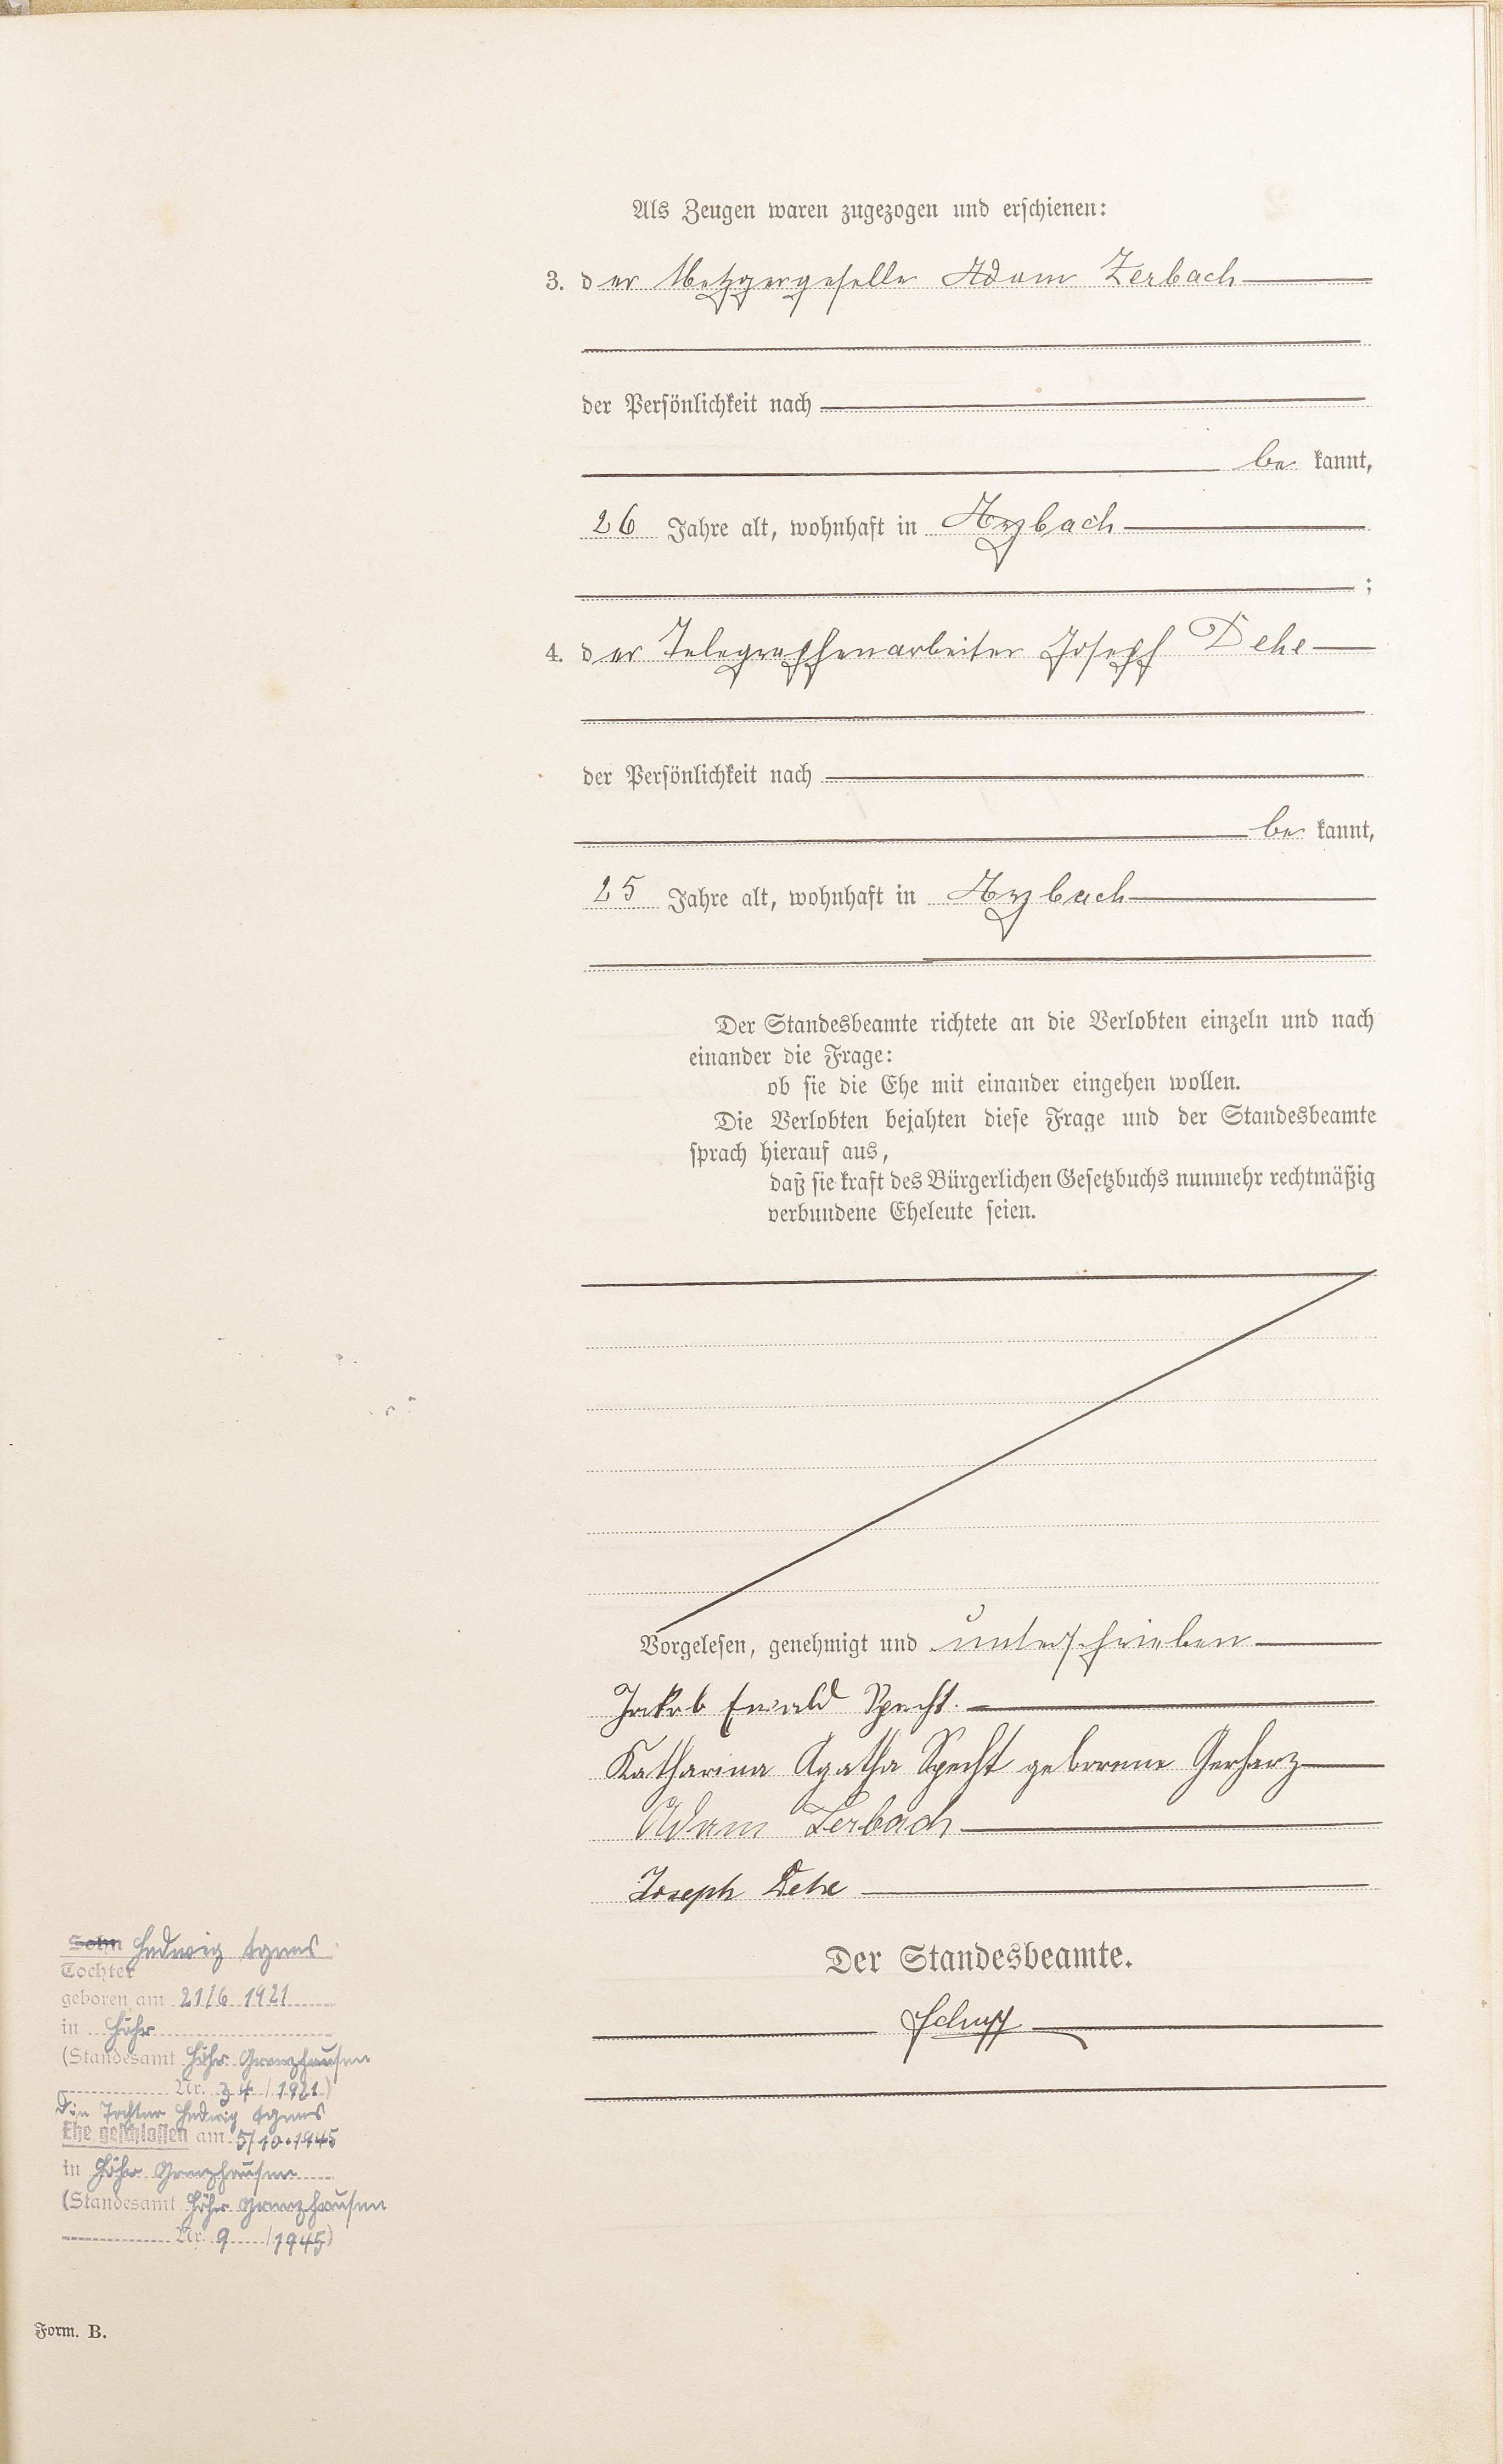 Als Zeugen waren zugezogen und erschienen:
3. der Metzgergeselle Adam Zerbach
der Persönlichkeit nach
be kannt,
26 Jahre alt, wohnhaft in Arzbach
;
4. der Telegraphenarbeiter Joseph Dehe
der Persönlichkeit nach
be kannt,
25 Jahre alt, wohnhaft in Arzbach
Der Standesbeamte richtete an die Verlobten einzeln und nach
einander die Frage:
ob sie die Ehe mit einander eingehen wollen.
Die Verlobten bejahten diese Frage und der Standesbeamte
sprach hierauf aus,
daß sie kraft des Bürgerlichen Gesetzbuchs nunmehr rechtmäßig
verbundene Eheleute seien.
Vorgelesen, genehmigt und unterschrieben
Jakob Ewald Specht.
Katharina Agatha Specht geborene Gerharz
Adam Zerbach
Joseph Dehe
Der Standesbeamte.
Schupp
Sohn Hedwig Agnes
Tochter
geboren am 21/6 1921
in Höhr
(Standesamt Höhr-Grenzhausen
Nr. 34/1921)
Die Tochter Hedwig Agnes
Ehe geschlossen am 5/10.1945
in Höhr Grenzhausen
(Standesamt Höhr-Grenzhausen
Nr. 9/1945)
Form. B.